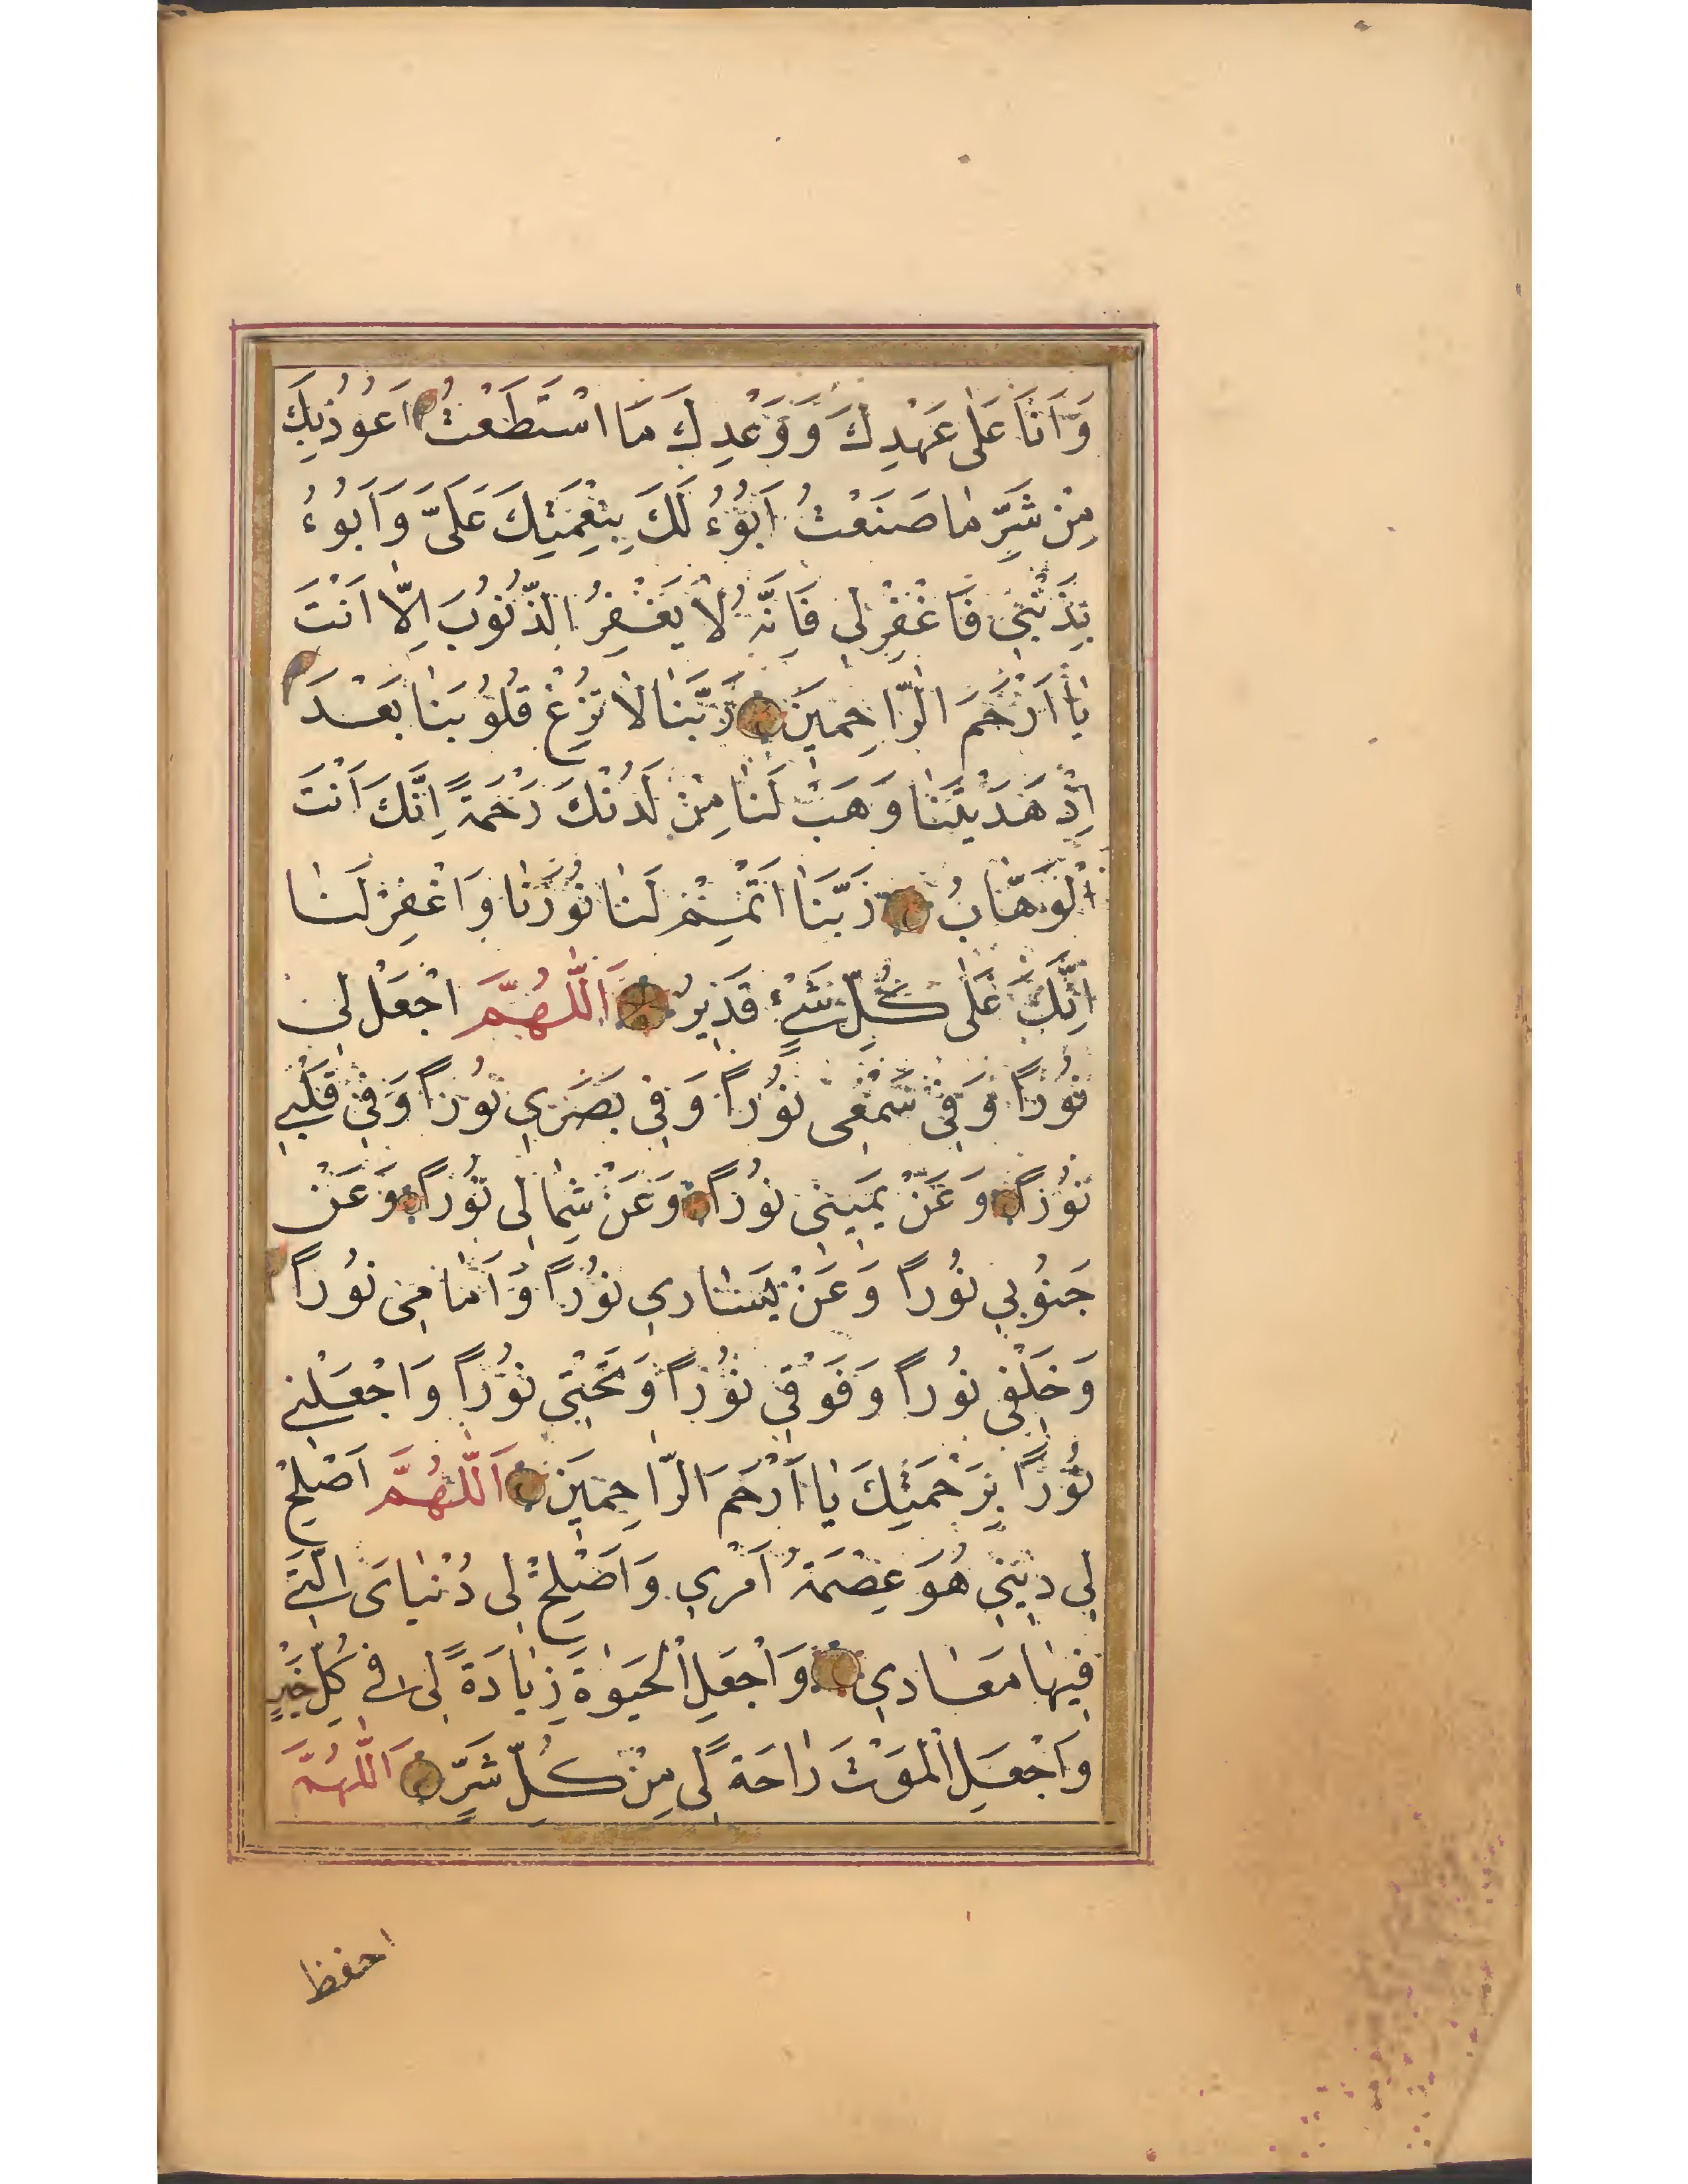 وَاَنَا عَلٰى عَهْدِكَ وَوَعْدِكَ مَا اسْتَطَعْتُ اَعُوذُبِكَ
مِنْ شَرِّ مٰا صَنَعْتُ اَبُوْءُ لَكَ بِنِعْمَتِكَ عَلَىَّ وَاَبُوْءُ
بِذَنْبِىْ فَاغْفِرْلِى فَاِنَّهُ لٰا يَغْفِرُ الذُّنُوْبَ اِلّٰا اَنْتَ
يٰا اَرْحَمَ الرّٰاحِمِيْنَ رَبَّنَا لٰا تُزِغْ قُلُوْبَنٰا بَعْدَ
اِذْ هَدَيْتَنٰا وَهَبْ لَنٰا مِنْ لَدُنْكَ رَحْمَةً اِنَّكَ اَنْتَ
الْوَهّٰابُ رَبَّنٰا اَتْمِمْ لَنٰا نُوْرَنٰا وَاغْفِرْ لَنٰا
اِنَّكَ عَلٰى كُلِّ شَىْءٍ قَدِيْرٌ اَللّٰهُمَّ اجْعَلْ لِىْ
نُوْرًا وَفِىْ سَمْعِىْ نُوْرًا وَفِىْ بَصَرِىْ نُوْرًا وَفِىْ قَلْبِىْ
نُوْرًا وَعَنْ يَمِيْنِىْ نُوْرًا وَعَنْ شِمٰالِى نُوْرًا وَعَنْ
جَنُوْبِى نُوْرًا وَعَنْ يَسٰارِى نُوْرًا وَاَمٰامِى نُوْرًا
وَخَلْفِى نُوْرًا وَفَوْقِى نُوْرًا وَتَحْتِىْ نُوْرًا وَاجْعَلْنِى
نُوْرًا بِرَحْمَتِكَ يٰا اَرْحَمَ الرّٰاحِمِيْنَ اَللّٰهُمَّ اَصْلِحْ
لِى دِيْنِىْ هُوَ عِصْمَةُ اَمْرِى وَاَصْلِحْ لِى دُنْيٰاىَ الَّتِىْ
فِيْهٰا مَعٰادِى وَاجْعَلِ الْحَيٰوةَ زِيٰادَةً لِى فِى كُلِّ خَيْرٍ
وَاجْعَلِ الْمَوْتَ رٰاحَةً لِى مِنْ كُلِّ شَرٍّ اَللّٰهُمَّ
احفظ